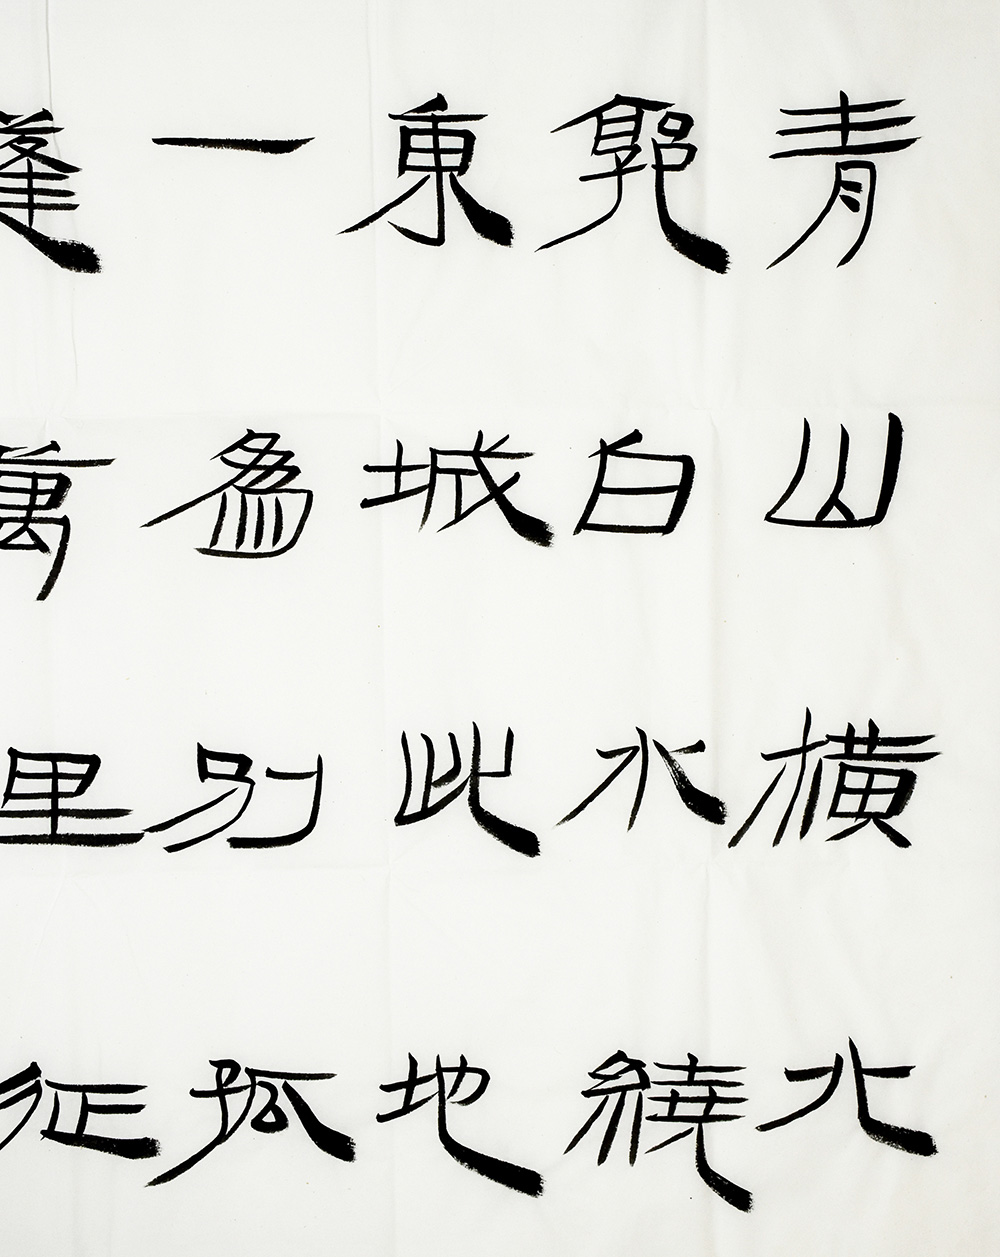 青山橫北
郭白水繞
東城此地
一為別孤
蓬萬里征